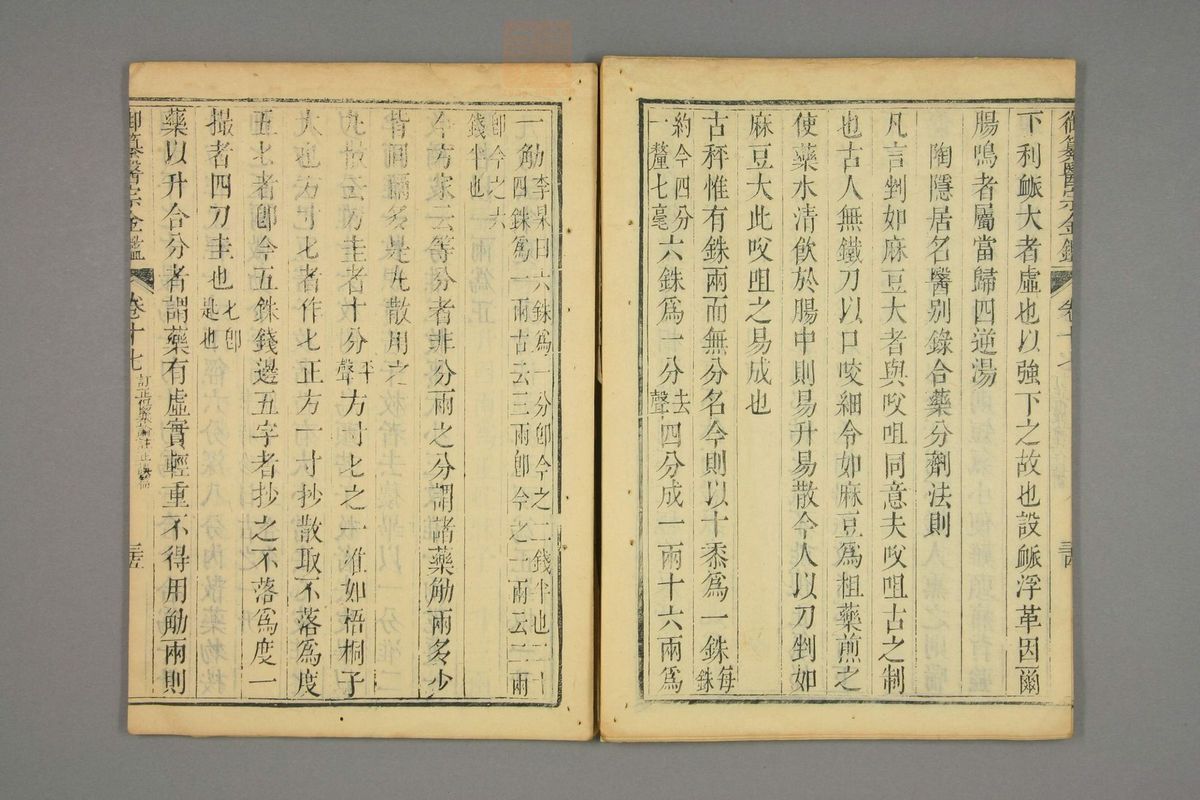 御纂醫宗金鑑 卷十七 三百
下利脈大者虛也以強下之故也設脈浮革因爾
腸鳴者屬當歸四逆湯
陶隱居名醫別錄合藥分劑法則
凡言剉如麻豆大者與㕮咀同意夫㕮咀古之制
也古人無鐵刀以口咬細令如麻豆爲粗藥煎之
使藥水清飲於腸中則易升易散今人以刀剉如
麻豆大此㕮咀之易成也
古秤惟有銖兩而無分名今則以十黍爲一銖每銖
約今四分一釐七毫六銖爲一分去聲四分成一兩十六兩爲
一觔李杲曰六銖爲一分卽今之二錢半也二十四銖爲一兩古云三兩卽今之一兩云二兩
卽今之六錢半也
今方家云等分者非分兩之分謂諸藥觔兩多少
皆同爾多是丸散用之
丸散云刀圭者十分平聲方寸匕之一准如梧桐子
大也方寸匕者作匕正方一寸抄散取不落爲度
五匕者卽今五銖錢邊五字者抄之不落爲度一
撮者四刀圭也匕卽匙也
藥以升合分者謂藥有虛實輕重不得用觔兩則
御纂醫宗金鑑 卷十七